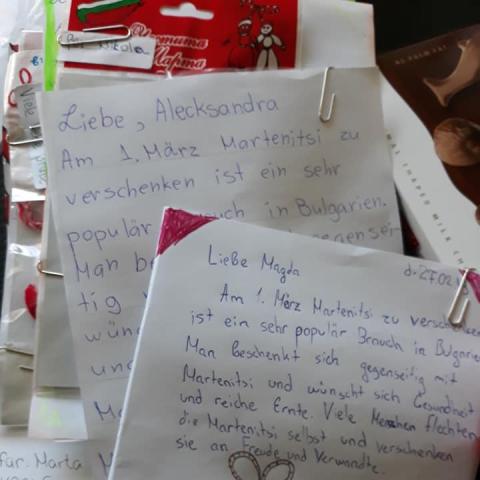 Честита
Марта
Liebe, Alecksandra
Am 1. März Martenitsi zu
verschenken ist ein sehr
populär auch in Bulgarien.
gegensei-
Man be
tig
wün
und
Ma
für. Marta
Liebe Magda
d. 27.02
Am 1. März Martenitsi zu verschenken
ist ein sehr populär Brauch in Bulgarie
Man beschenkt sich gegenseitig mit
Martenitsi und wünscht sich Gesundheit
und reiche Ernte. Viele Menschen flechten
die Martenitsi selbst und verschenken
sie an Freude und Verwandte.